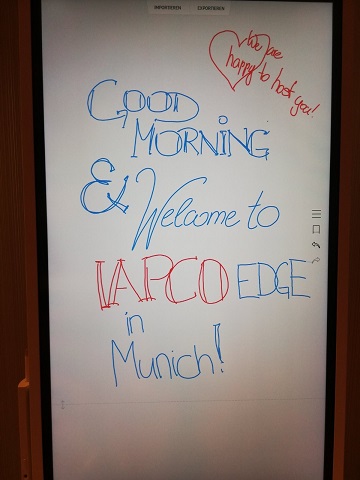 IMPORTIEREN EXPORTIEREN
We are
happy to
host you!
GOOD
MORNING
& Welcome to
IAPCO EDGE
in
Munich!